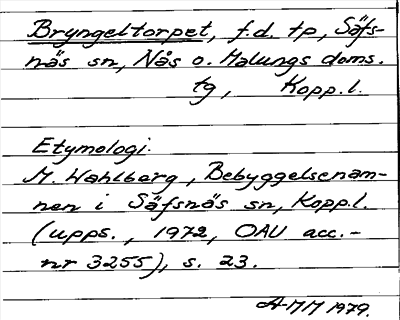 Bryngeltorpet, f.d. tp, Säfs-
näs sn, Nås o. Malungs doms.
tg, Kopp.l.
Etymologi.
M. Wahlberg, Bebyggelsenam-
nen i Säfsnäs sn, Kopp.l.
(upps., 1972, OAU acc.-
nr 3255), s. 23.
A-MM 1979.